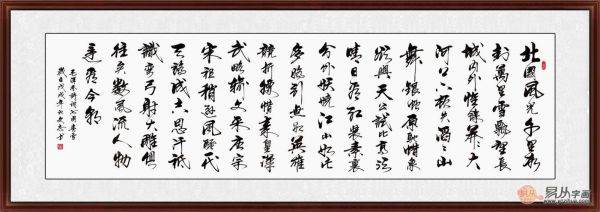 北國風光千里冰
封萬里雪飄望長
城内外惟餘莽々大
河上下頓失滔々山
舞銀蛇原馳蠟象
欲與天公試比高須
晴日看紅裝素裹
分外妖嬈江山如此
多嬌引無數英雄
競折腰惜秦皇漢
武略輸文采唐宗
宋祖稍遜風騷一代
天驕成吉思汗祇
識彎弓射大雕俱
往矣數風流人物
還看今朝
毛澤東詩詞沁園春雪
歲在戊戌年
易从字画